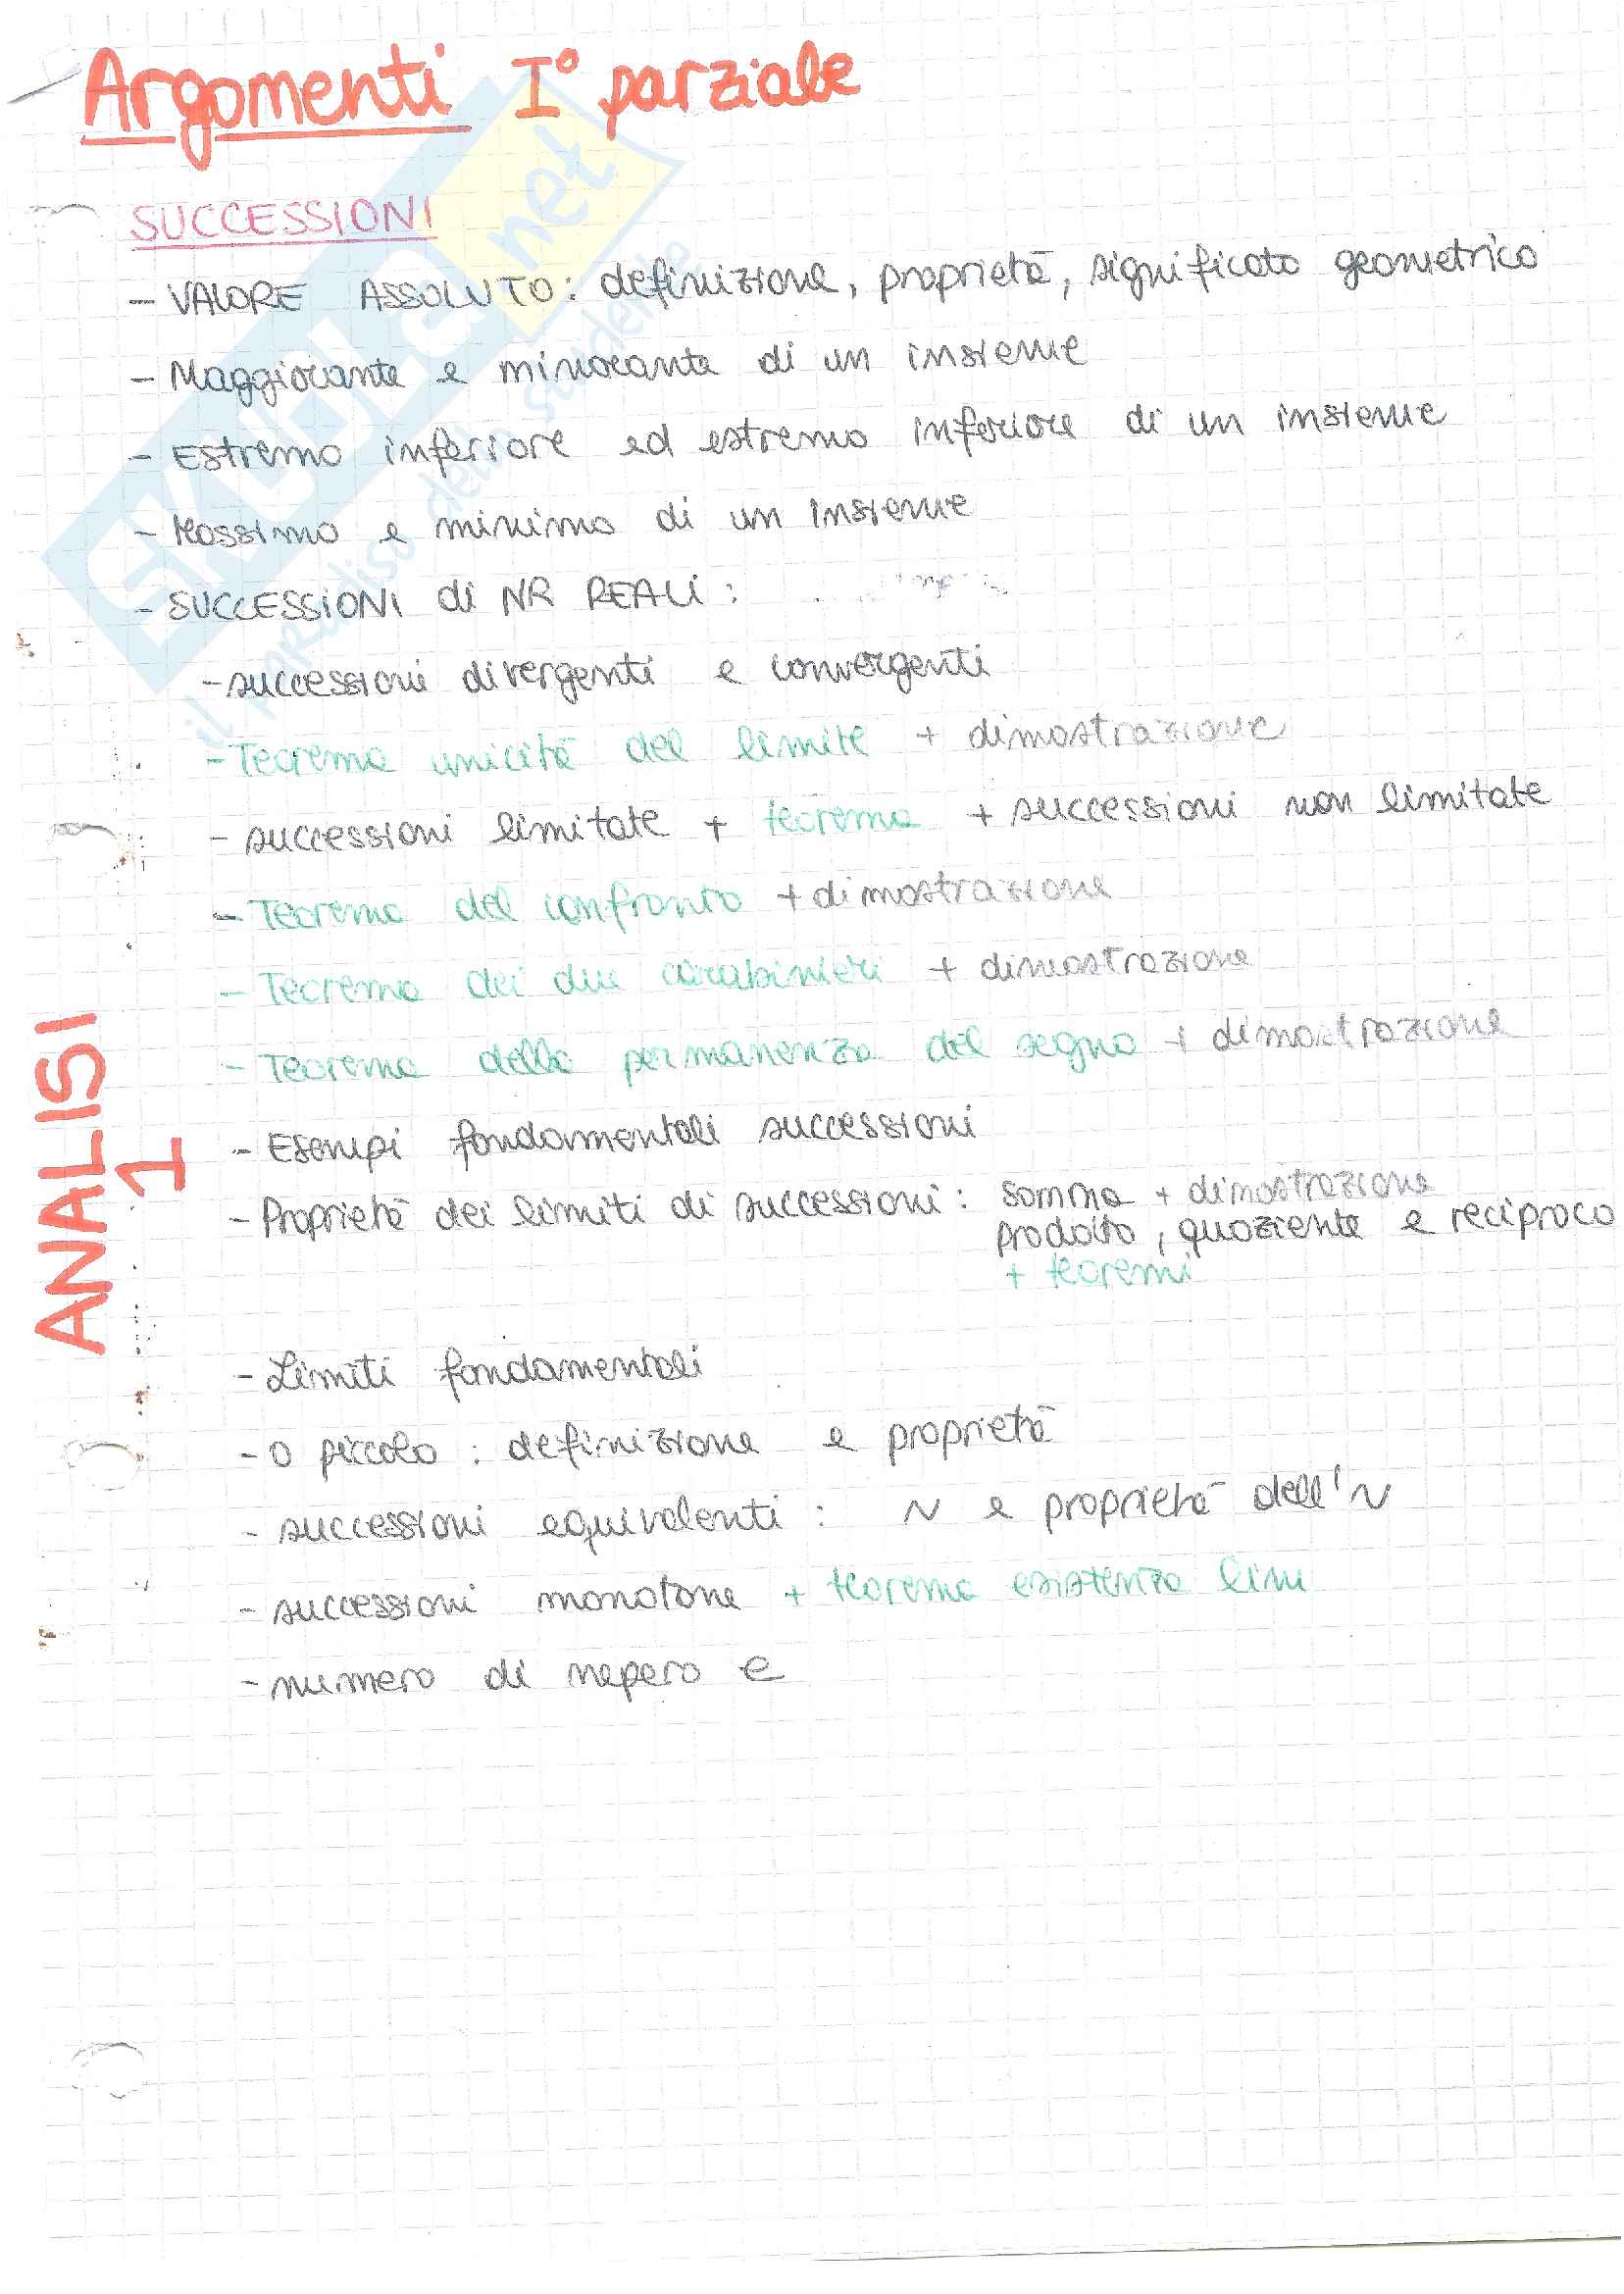 Argomenti I° parziale
SUCCESSIONI
- VALORE ASSOLUTO: definizione, proprietà, significato geometrico
- Maggiorante e minorante di un insieme
- Estremo inferiore ed estremo inferiore di un insieme
- Massimo e minimo di un insieme
- SUCCESSIONI di NR REALI:
- successioni divergenti e convergenti
- Teorema unicità del limite + dimostrazione
- successioni limitate + teorema + successioni non limitate
- Teorema del confronto + dimostrazione
- Teorema dei due carabinieri + dimostrazione
- Teorema della permanenza del segno + dimostrazione
- Esempi fondamentali successioni
- Proprietà dei limiti di successioni: somma + dimostrazione
prodotto, quoziente e reciproco
+ teoremi
- Limiti fondamentali
- o piccolo: definizione e proprietà
- successioni equivalenti: ~ e proprietà dell'~
- successioni monotone + teorema esistenza lim
- numero di nepero e
ANALISI
1
SKUOLA.net
il paradiso dello studente